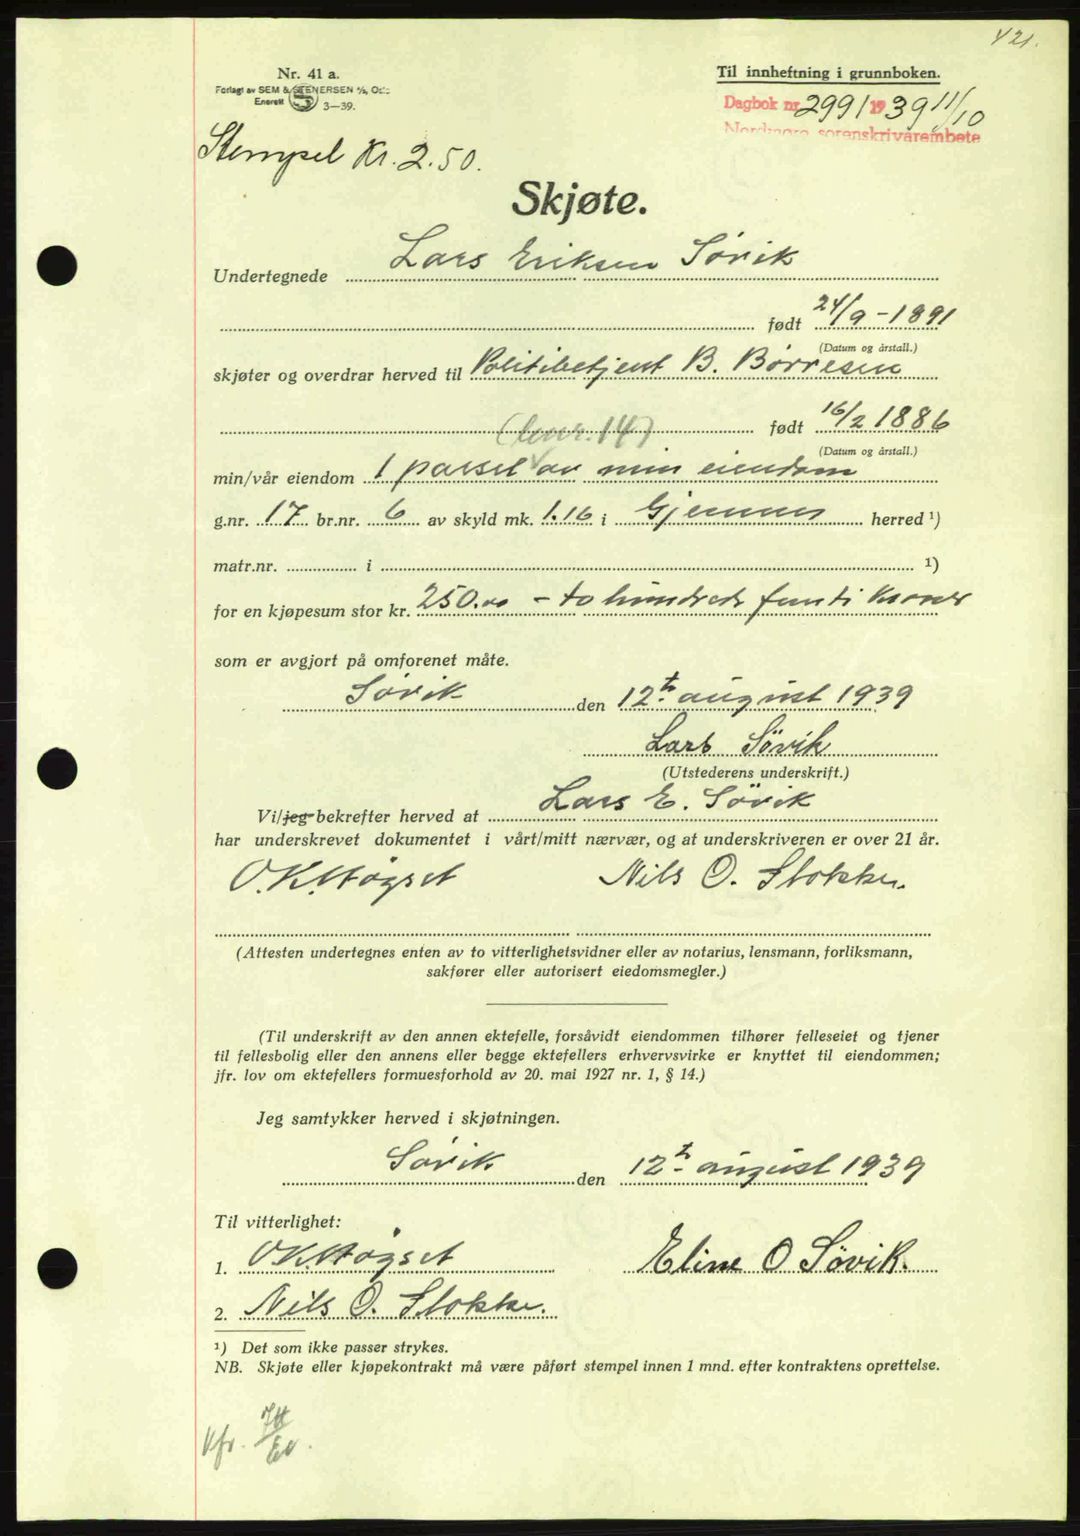 421.
Nr. 41 a.
Forlagt av SEM & STENERSEN A/S, Oslo
Enerett S 3-39.
Til innheftning i grunnboken.
Dagbok nr. 2991 1939 11/10
Nordmøre sorenskriverembete
Stempel Kr. 2.50.
Skjøte.
Undertegnede Lars Eriksen Sørik
født 24/9-1891
(Datum og årstall.)
skjøter og overdrar herved til Politibetjent B. Børresen
(bnr. 14) født 16/2 1886
(Datum og årstall.)
min/vår eiendom 1 parsel av min eiendom
g.nr. 17 br.nr. 6 av skyld mk. 1.16 i Gjemnes herred ¹)
matr.nr. i ¹)
for en kjøpesum stor kr. 250.00 - to hundrede femti kroner
som er avgjort på omforenet måte.
Sørik den 12te august 1939
Lars Sövik
(Utstederens underskrift.)
Vi/jeg bekrefter herved at Lars E. Sövik
har underskrevet dokumentet i vårt/mitt nærvær, og at underskriveren er over 21 år.
O.K. Høgset Nils O. Stokke.
(Attesten undertegnes enten av to vitterlighetsvidner eller av notarius, lensmann, forliksmann,
sakfører eller autorisert eiedomsmegler.)
(Til underskrift av den annen ektefelle, forsåvidt eiendommen tilhører felleseiet og tjener
til fellesbolig eller den annens eller begge ektefellers erhvervsvirke er knyttet til eiendommen;
jfr. lov om ektefellers formuesforhold av 20. mai 1927 nr. 1, § 14.)
Jeg samtykker herved i skjøtningen.
Sørik den 12te august 1939
Til vitterlighet:
1. O.K. Høgset Eline O Sövik.
2. Nils O. Stokke.
¹) Det som ikke passer strykes.
NB. Skjøte eller kjøpekontrakt må være påført stempel innen 1 mnd. efter kontraktens oprettelse.